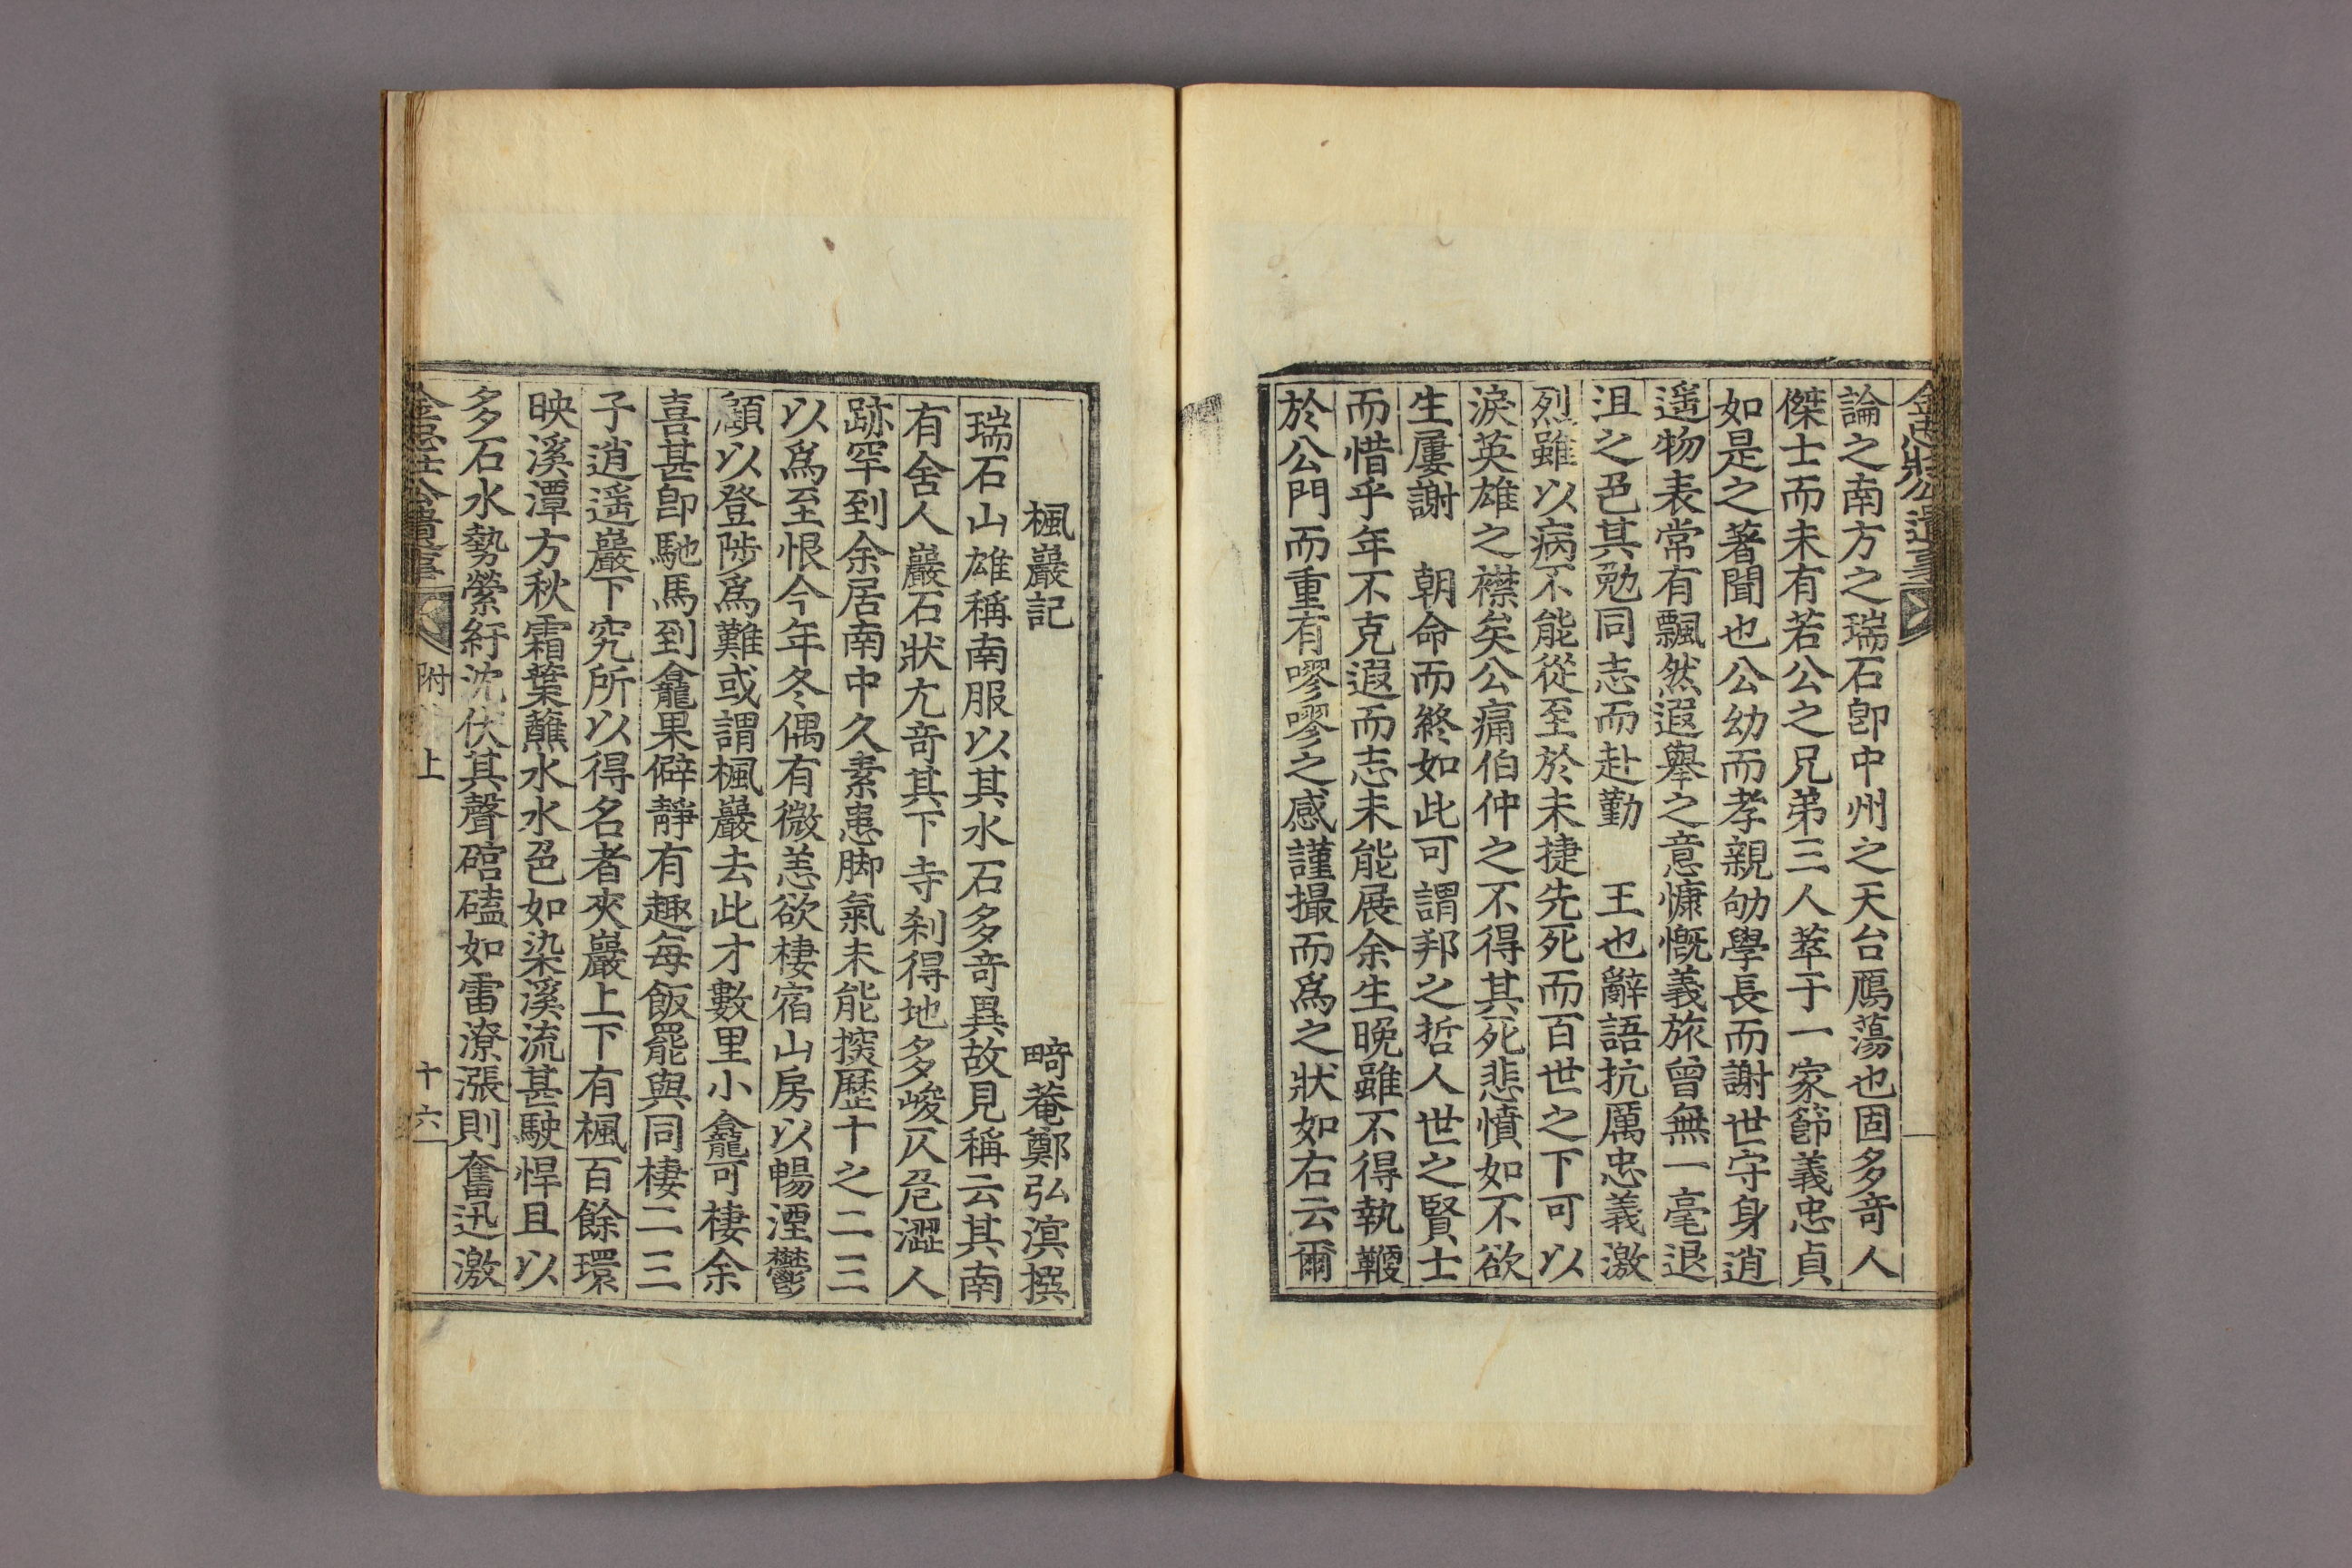 金忠壯公遺事
論之南方之瑞石卽中州之天台鴈蕩也固多奇人
傑士而未有若公之兄弟三人萃于一家節義忠貞
如是之著聞也公幼而孝親劬學長而謝世守身逍
遥物表常有飄然遐擧之意慷慨義旅曾無一毫退
沮之色其勉同志而赴勤　王也辭語抗厲忠義激
烈雖以病不能從至於未捷先死而百世之下可以
淚英雄之襟矣公痛伯仲之不得其死悲憤如不欲
生屢謝　朝命而終如此可謂邦之哲人世之賢士
而惜乎年不克遐而志未能展余生晚雖不得執鞭
於公門而重有嘐嘐之感謹撮而爲之狀如右云爾
楓巖記　畸菴鄭弘溟撰
瑞石山雄稱南服以其水石多奇異故見稱云其南
有舍人巖石狀尤奇其下寺刹得地多峻仄危澀人
跡罕到余居南中久素患脚氣未能探歷十之二三
以爲至恨今年冬偶有微恙欲棲宿山房以暢湮鬱
顧以登陟爲難或謂楓巖去此才數里小龕可棲余
喜甚卽馳馬到龕果僻靜有趣每飯罷與同棲二三
子逍遥巖下究所以得名者夾巖上下有楓百餘環
映溪潭方秋霜葉蘸水水色如染溪流甚駛悍且以
多石水勢縈紆沈伏其聲硿磕如雷潦漲則奮迅激
金忠壯公遺事　附　上　十六